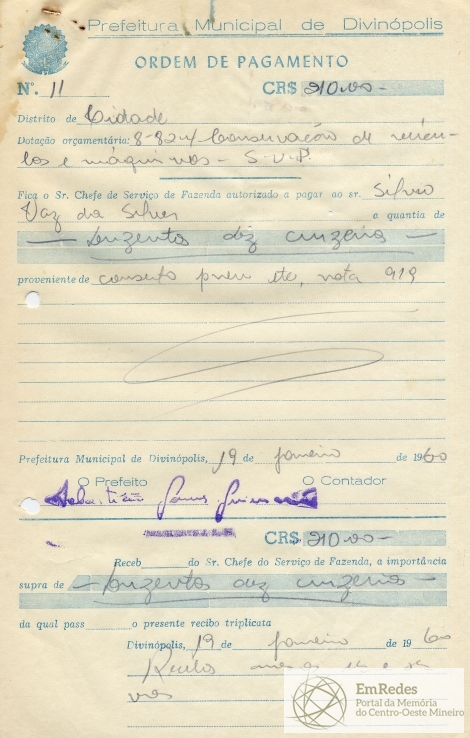 Prefeitura Municipal de Divinópolis
ORDEM DE PAGAMENTO
Nº. 11 CR$ 210.00-
Distrito de Cidade
Dotação orçamentária: 8-82-4 Conservação de veícu-
los e máquinas - S.V.P.
Fica o Sr. Chefe de Serviço de Fazenda autorizado a pagar ao sr. Silvio
Vaz da Silva a quantia de
- duzentos dez cruzeiros -
proveniente de conserto pneu etc, nota 919
Prefeitura Municipal de Divinópolis, 19 de janeiro de 1960
O Prefeito O Contador
Sebastião Gomes Guimarães
CR$ 210.00-
Receb do Sr. Chefe do Serviço de Fazenda, a importância
supra de - duzentos dez cruzeiros -
da qual pass o presente recibo triplicata
Divinópolis, 19 de janeiro de 1960
EmRedes
Portal da Memória
do Centro-Oeste Mineiro